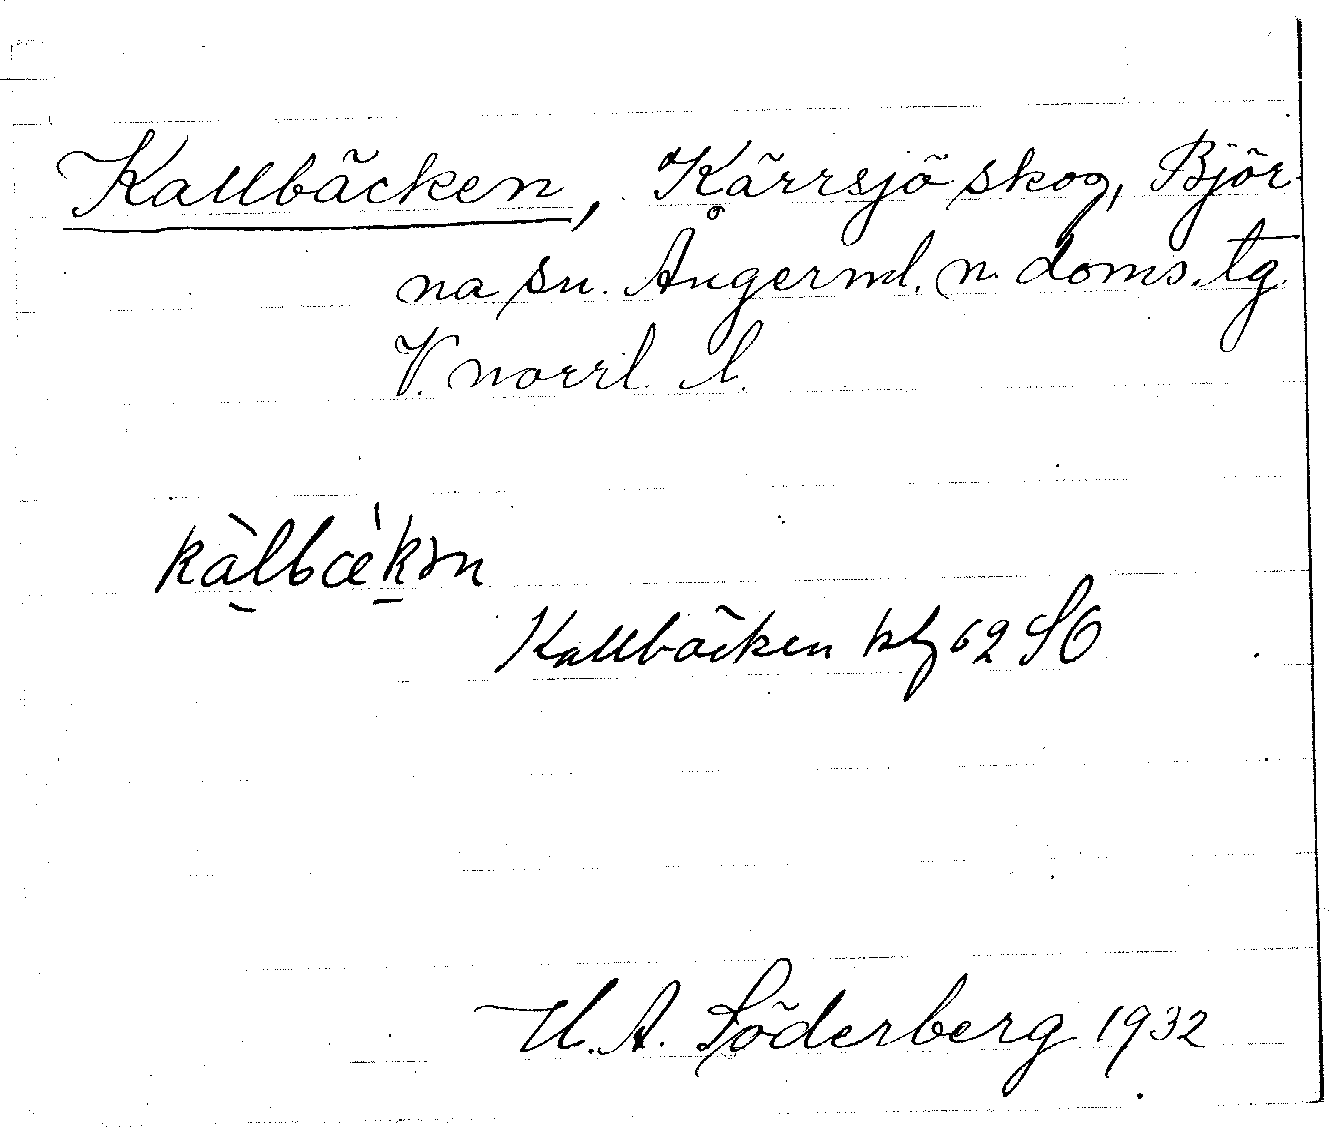 Kallbäcken, Kärrsjö skog, Björ-
na sn. Ångerml. n. doms. tg.
V. norrl. l.
kàlbæ̀kən
Kallbäcken 62 SO
A. Söderberg 1932